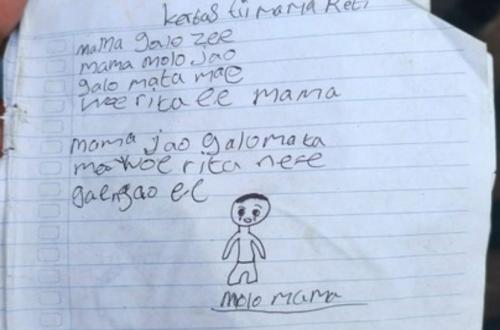 kertas tii mama Reti
mama galo zee
mama molo Jao
galo mata mae
woe rita ee mama
mama jao galo mata
mae woe rita nese
gaengao ee
molo mama